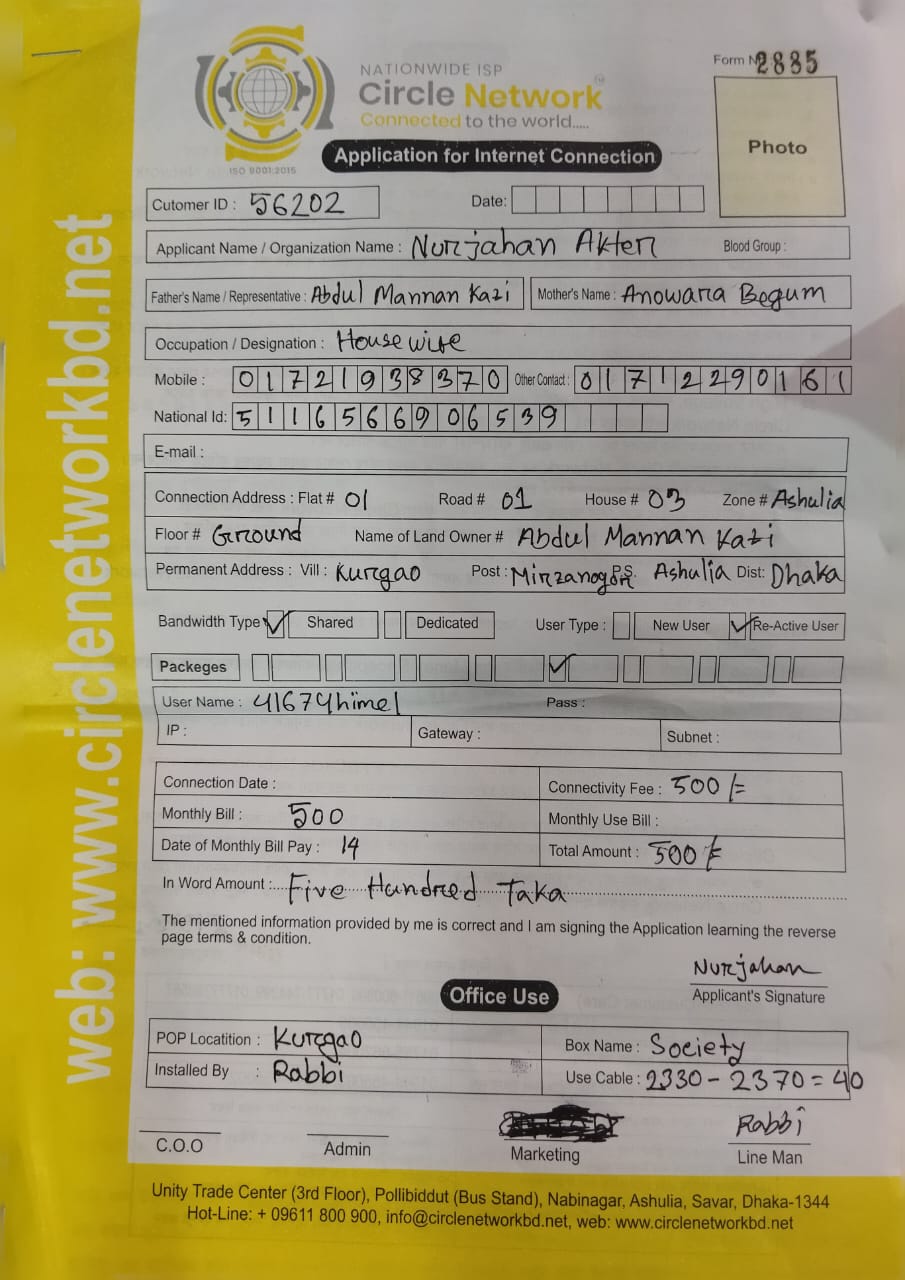 NATIONWIDE ISP
Circle Network
Connected to the world.....
ISO 9001:2015
Form No 2885
Photo
Application for Internet Connection
Cutomer ID : 56202 Date:
Applicant Name / Organization Name : Nurjahan Akter Blood Group :
Father's Name / Representative : Abdul Mannan Kazi Mother's Name : Anowara Begum
Occupation / Designation : Housewife
Mobile : 01721938370 Other Contact : 01712290161
National Id: 5116566906539
E-mail :
Connection Address : Flat # 01 Road # 01 House # 03 Zone # Ashulia
Floor # Ground Name of Land Owner # Abdul Mannan Kazi
Permanent Address : Vill : Kurgao Post : Mirzanogor P.S. Ashulia Dist: Dhaka
Bandwidth Type Shared Dedicated User Type : New User Re-Active User
Packeges
User Name : 41674himel Pass :
IP : Gateway : Subnet :
Connection Date : Connectivity Fee : 500/=
Monthly Bill : 500 Monthly Use Bill :
Date of Monthly Bill Pay : 14 Total Amount : 500/=
In Word Amount :....Five Hundred Taka
The mentioned information provided by me is correct and I am signing the Application learning the reverse
page terms & condition.
Nurjahan
Applicant's Signature
Office Use
POP Locatition : Kurgao Box Name : Society
Installed By : Rabbi Use Cable : 2330 - 2370 = 40
Rabbi
C.O.O Admin Marketing Line Man
Unity Trade Center (3rd Floor), Pollibiddut (Bus Stand), Nabinagar, Ashulia, Savar, Dhaka-1344
Hot-Line: + 09611 800 900, info@circlenetworkbd.net, web: www.circlenetworkbd.net
web: www.circlenetworkbd.net